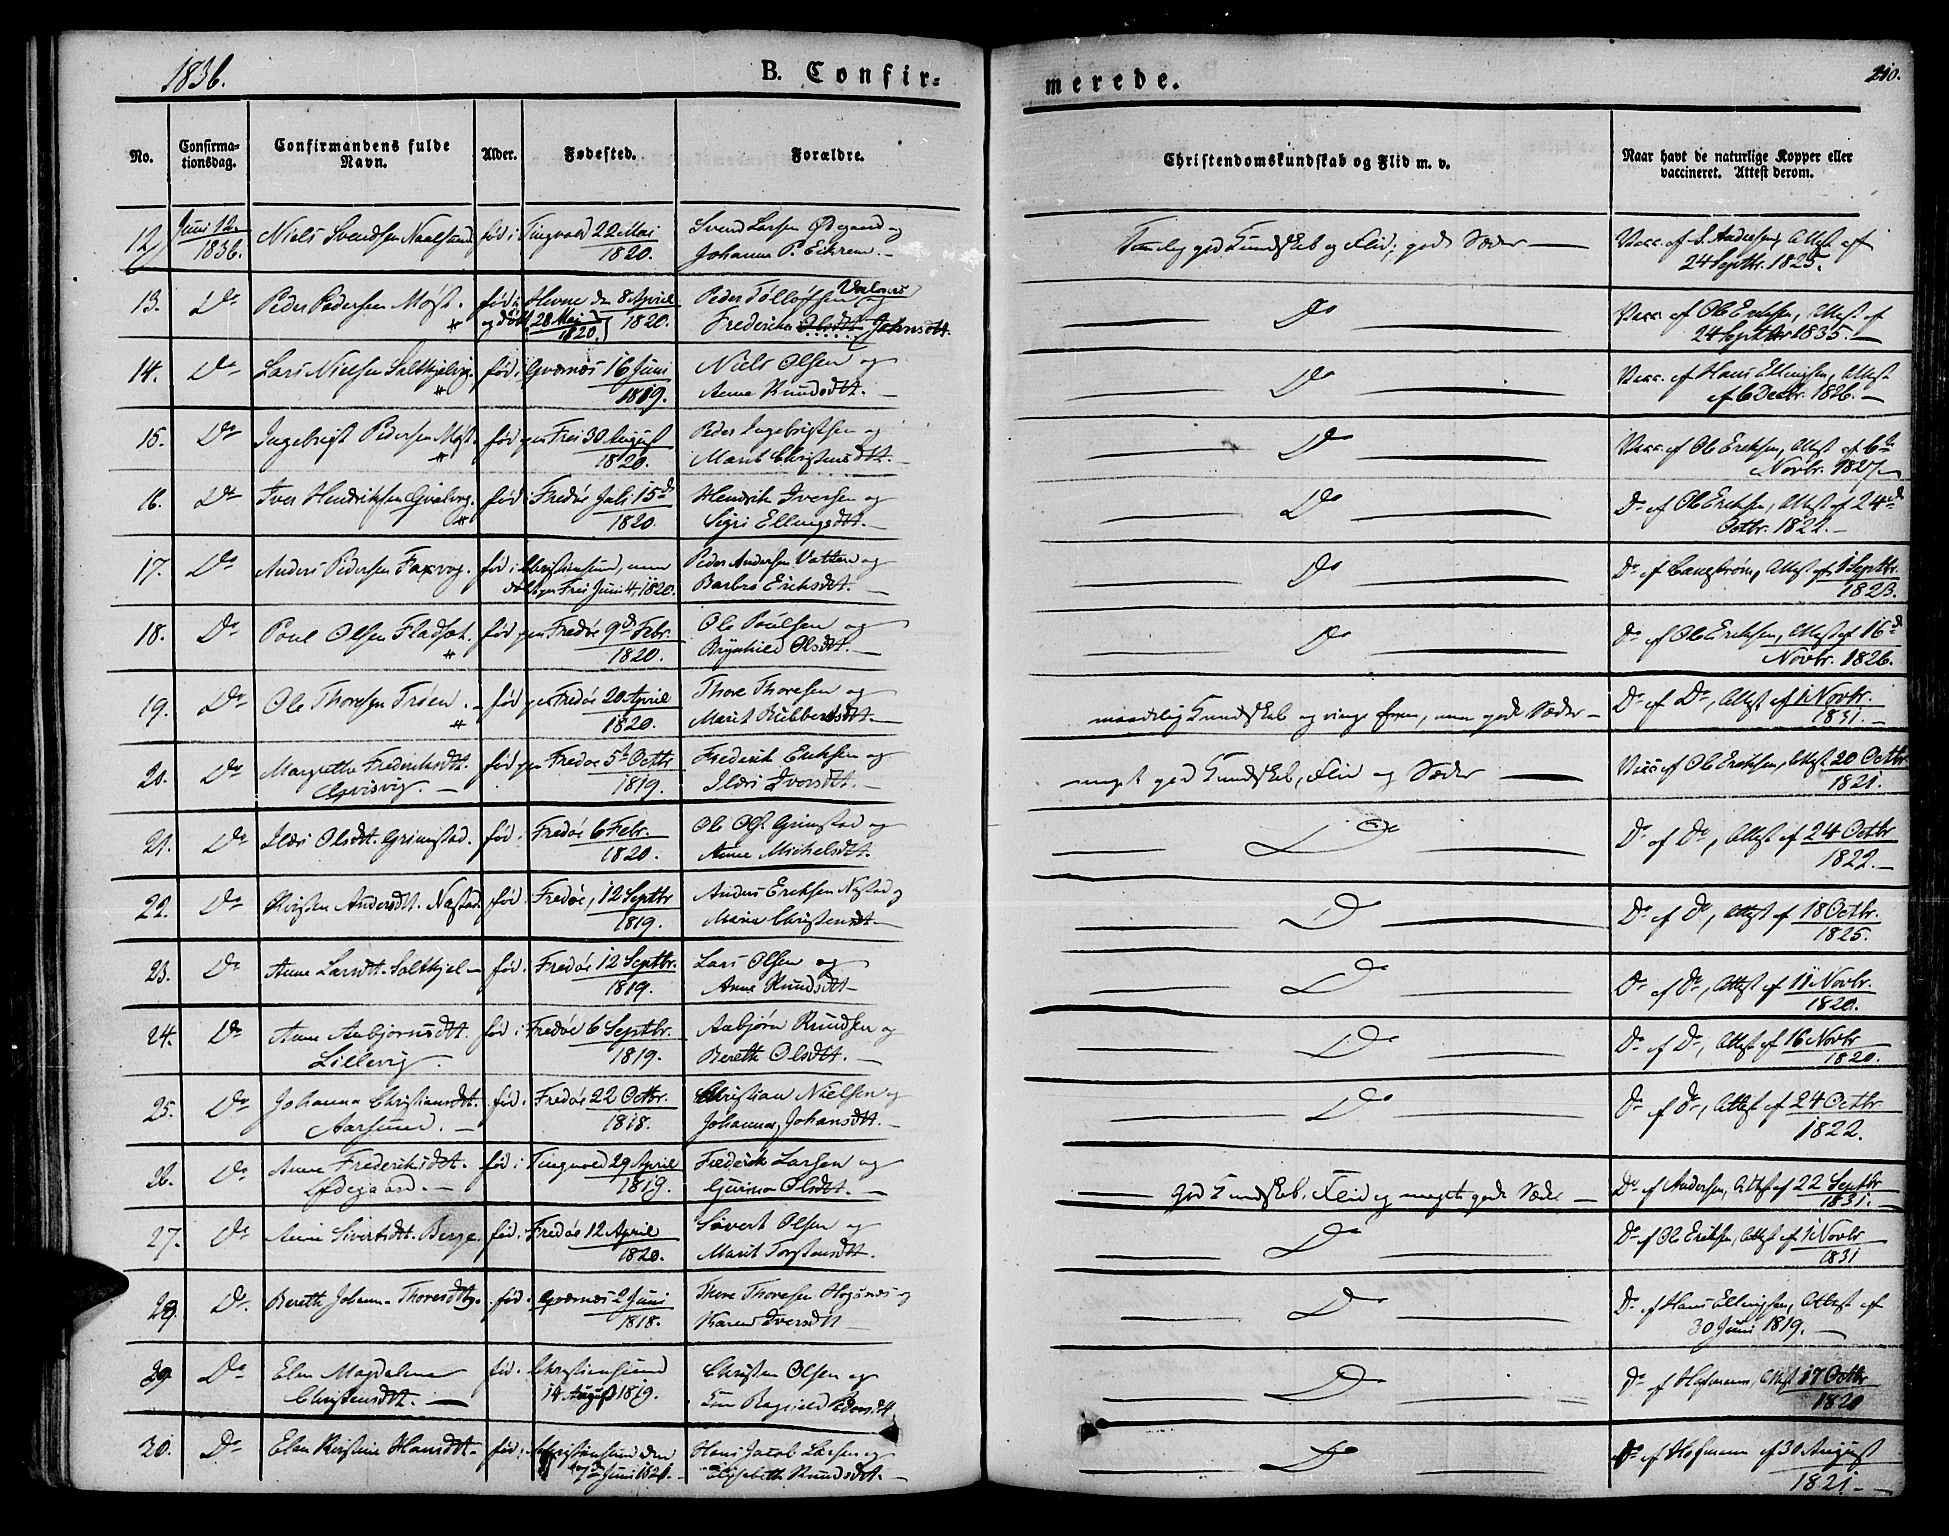 1836. B. Confir= merede. 210.
No. Confirma-tionsdag. Confirmandens fulde Navn. Alder. Fødested. Forældre. Christendomskundskab og Flid m. v. Naar havt de naturlige Kopper eller vaccineret. Attest derom.
12. Juni 12 1836. Niels Svendsen født i Tingvold 22 Mai 1820. Svend Larsen Ødegaard og Johanna P. Eikrem. Temlig god Kundskab og Flid; gode Sæder — Vacc. af S. Andersen, Attest af 24 Septbr. 1825.
13. Do Peder Pedersen Møst. født i Hevne den 8 April 1820. og døbt 28 Mai 1820. Peder Tølløfsen Valøens og Frederikke Olsdtt. Johnsdtt. Do Vacc. af Ole Eriksen, Attest af 24 Septbr 1835. —
14. Do Lars Nielsen født i Qværnæs 16 Juni 1819. Niels Olsen og Anne Knudsdtt. — Do Vacc. af Hans Ellingsen, Attest af 6 Decbr. 1826. —
15. Do Ingebrigt Pedersen Møst. født paa Frei 30 August 1820. Peder Ingebrigtsen og Marit Christensdtt. — Do Vacc. af Ole Eriksen, Attest af 6te Novbr. 1827 —
16. Do Iver Hendriksen født i Fredøe Juli 15de 1820. Hendrik Iversen og Sigri Ellingsdtt. — Do Do af Ole Eriksen, Attest af 24de Octbr. 1822. —
17. Do Anders Pedersen Faxvog. fød i Christiansund, men døbt paa Frei Juni 4, 1820. Peder Andersen Vatten og Barbro Eriksdtt. — Do Do af Langstrøm, Attest af 1 Septbr. 1823.
18. Do Poul Olsen Fladset. født paa Fredøe 9de Febr. 1820. Ole Poulsen og Brynhild Olsdtt. — Do Do af Ole Eriksen, Attest af 16de Novbr. 1826.
19. Do Ole Thoresen Trøen. født paa Fredøe 20 April 1820. Thore Thoresen og Marit — maadelig Kundskab og ringe Evne, men gode Sæder — Do af Do, Attest af 1 Novbr. 1831. —
20. Do Margrethe Frederiksdtt. Qvisvig. — født paa Fredøe 5te Octbr 1819. Frederik Eriksen og Ildri Iversdtt. — meget god Kundskab, Flid og Sæder — Vacc. af Ole Eriksen, Attest 20 Octbr. 1821.
21. Do Ildri Olsdtt. Grimstad. fød. i Fredøe 6 Febr. 1820. Ole Ols. Grimstad og Anne Michelsdtt. Do Do af Do, Attest af 24 Octbr 1822. —
22. Do Kristen Andersdtt. Næstad. fød. i Fredøe, 12 Septbr 1819. Anders Eriksen Næstad og Maria Christensdtt. — Do Do af Do, Attest af 18 Octbr. 1825.
23. Do Anne Larsdtt. Saltkjel — fød. i Fredøe 12 Septbr. 1819. Lars Olsen og Anne Knudsdtt — Do Do af Do, Attest af 11 Novbr. 1820.
24. Do Anne Asbjørnsdtt. Lillevig. fød. i Fredøe 6 Septbr. 1819. Asbjørn Knudsen og Bereth Olsdtt. — Do Do af Do, Attest af 16 Novbr 1820.
25. Do Johanna Christiansdtt. Aarsund. — fød. i Fredøe 22 Octbr. 1818. Christian Nielsen og Johanna Johansdtt. — Do Do af Do, Attest af 24 Octbr. 1822.
26. Do Anne Frederiksdtt. Ødegaard. — fød i Tingvold 29 April 1819. Frederik Larsen og Gurina Olsdtt. — god Kundskab, Flid og meget gode Sæder — Do af Andersen, Attest af 22 Septbr 1831. —
27. Do Anne Sivertsdtt. Berge. fød. i Fredøe 12 April 1820. Sivert Olsen og Marit Torstensdtt. — Do Do af Ole Eriksen, Attest af 1 Novbr 1831
28. Do Bereth Johanna Thoresdtt. fød. i Qværnæs 2 Juni 1818. Thore Thoresen Hogsnæs og Karen Iversdtt — Do Do af Hans Ellingsen, Attest af 30 Juni 1819. —
29. Do Elen Magdalena Christensdtt. — fød. i Christiansund 14 August 1819. Christen Olsen og Ragnild Pedersdtt. Do Do af Hofmann, Attest 17 Octbr 1820
30. Do Elen Kirstine Hansdtt — fød. i Christiansund den 7de Juni 1821. — Hans Jacob Larsen og Elisabeth Knudsdtt. — Do Do af Hofmann af 30 August 1821. —